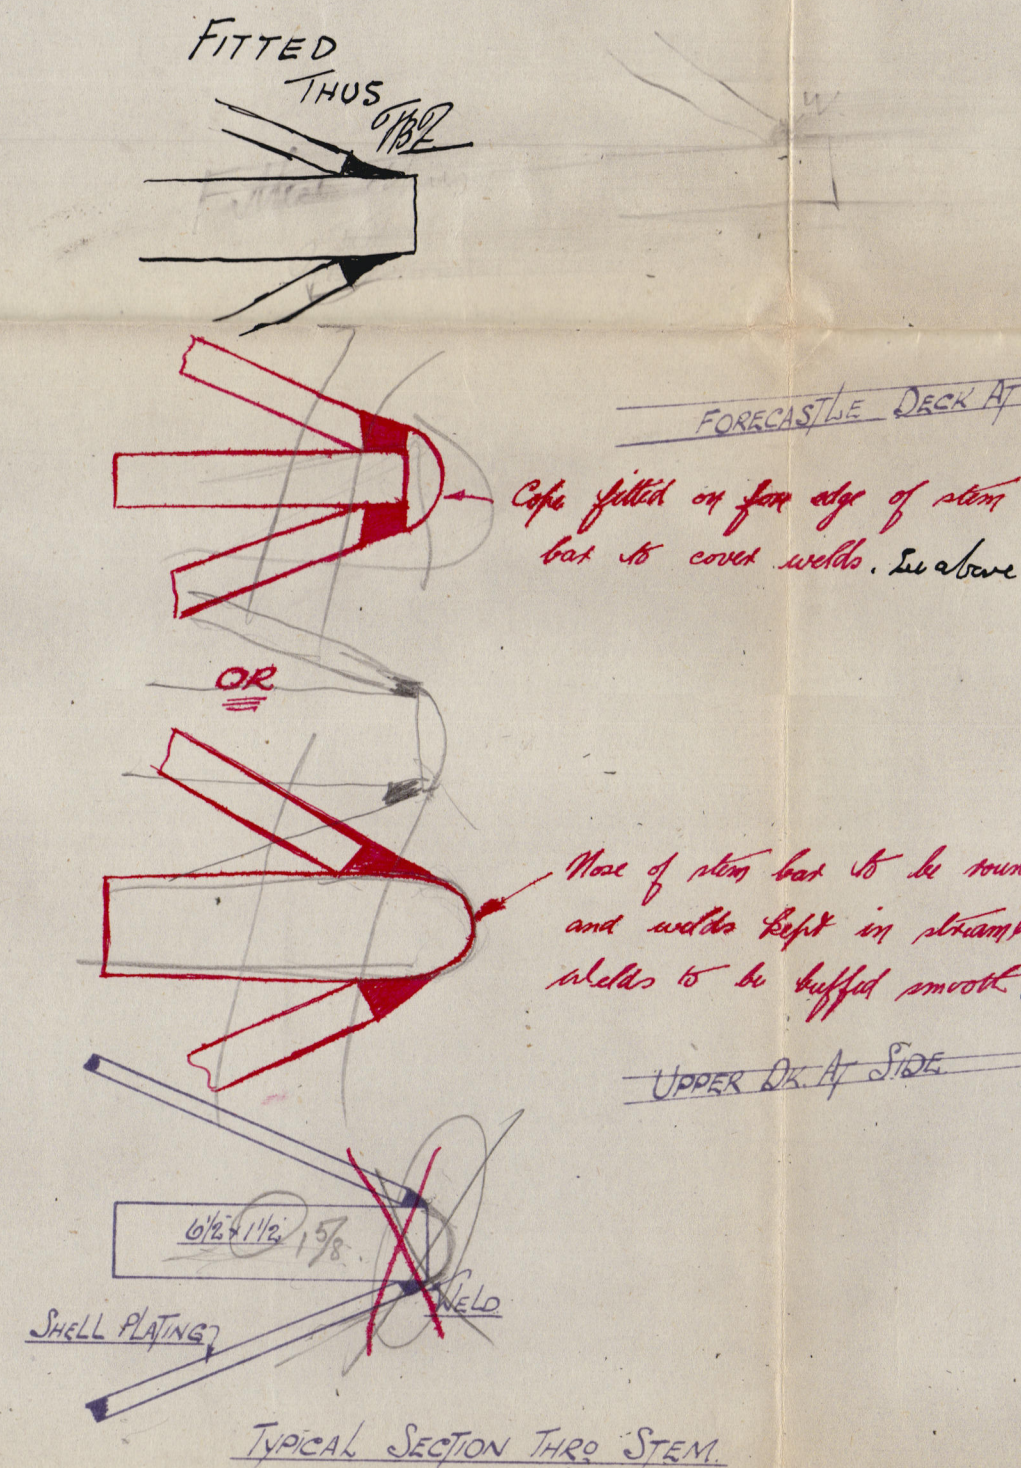 FITTED
THUS
FORECASTLE DECK AT
Cope fitted on fore edge of stem
bar to cover welds. See above
OR
Nose of stem bar to be roun
and welds kept in stream
welds to be buffed smooth
UPPER DK. AT SIDE
6 1/2 x 1 1/2 1 5/8
WELD
SHELL PLATING
TYPICAL SECTION THRO STEM.